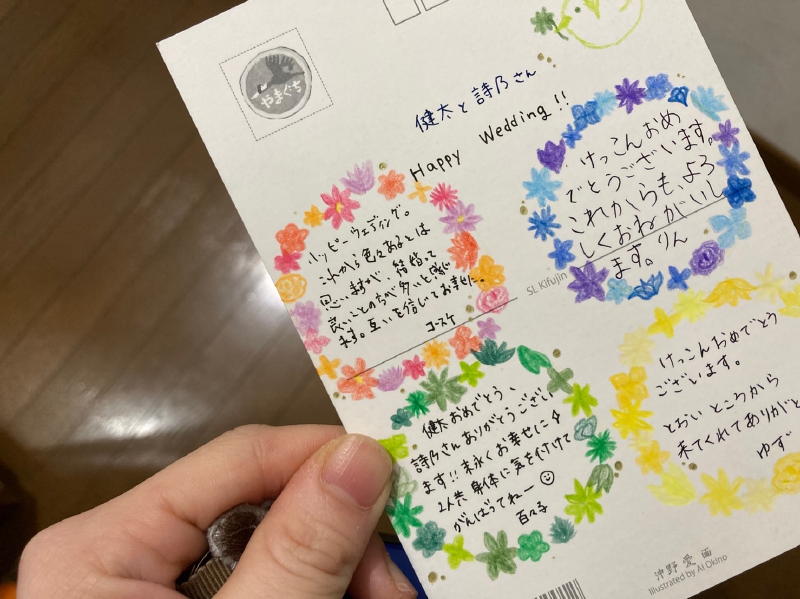 やまぐち
健太と詩乃さん
Happy Wedding!!
ハッピーウェディング。
これから色々あるとは
思いますが、結婚って
良いことのちが多いと感じ
ます。互いを信じてお幸せに。
コースケ
けっこんおめ
でとうございます。
これからも、よろ
しくおねがいし
ます。りん
SL Kifujin
健太おめでとう、
詩乃さんありがとうござい
ます!!末永くお幸せに
2人共身体に気を付けて
がんばってねー
百々子
けっこんおめでとう
ございます。
とおいところから
来てくれてありがと
ゆず
沖野愛画
Illustrated by Ai Okino